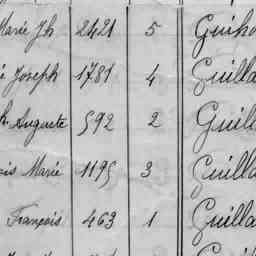 Marie Jh 2421 5 Guiho
Joseph 1781 4 Guilla
Auguste 592 2 Guill
Marie 1195 3 Guilla
François 463 1 Guilla